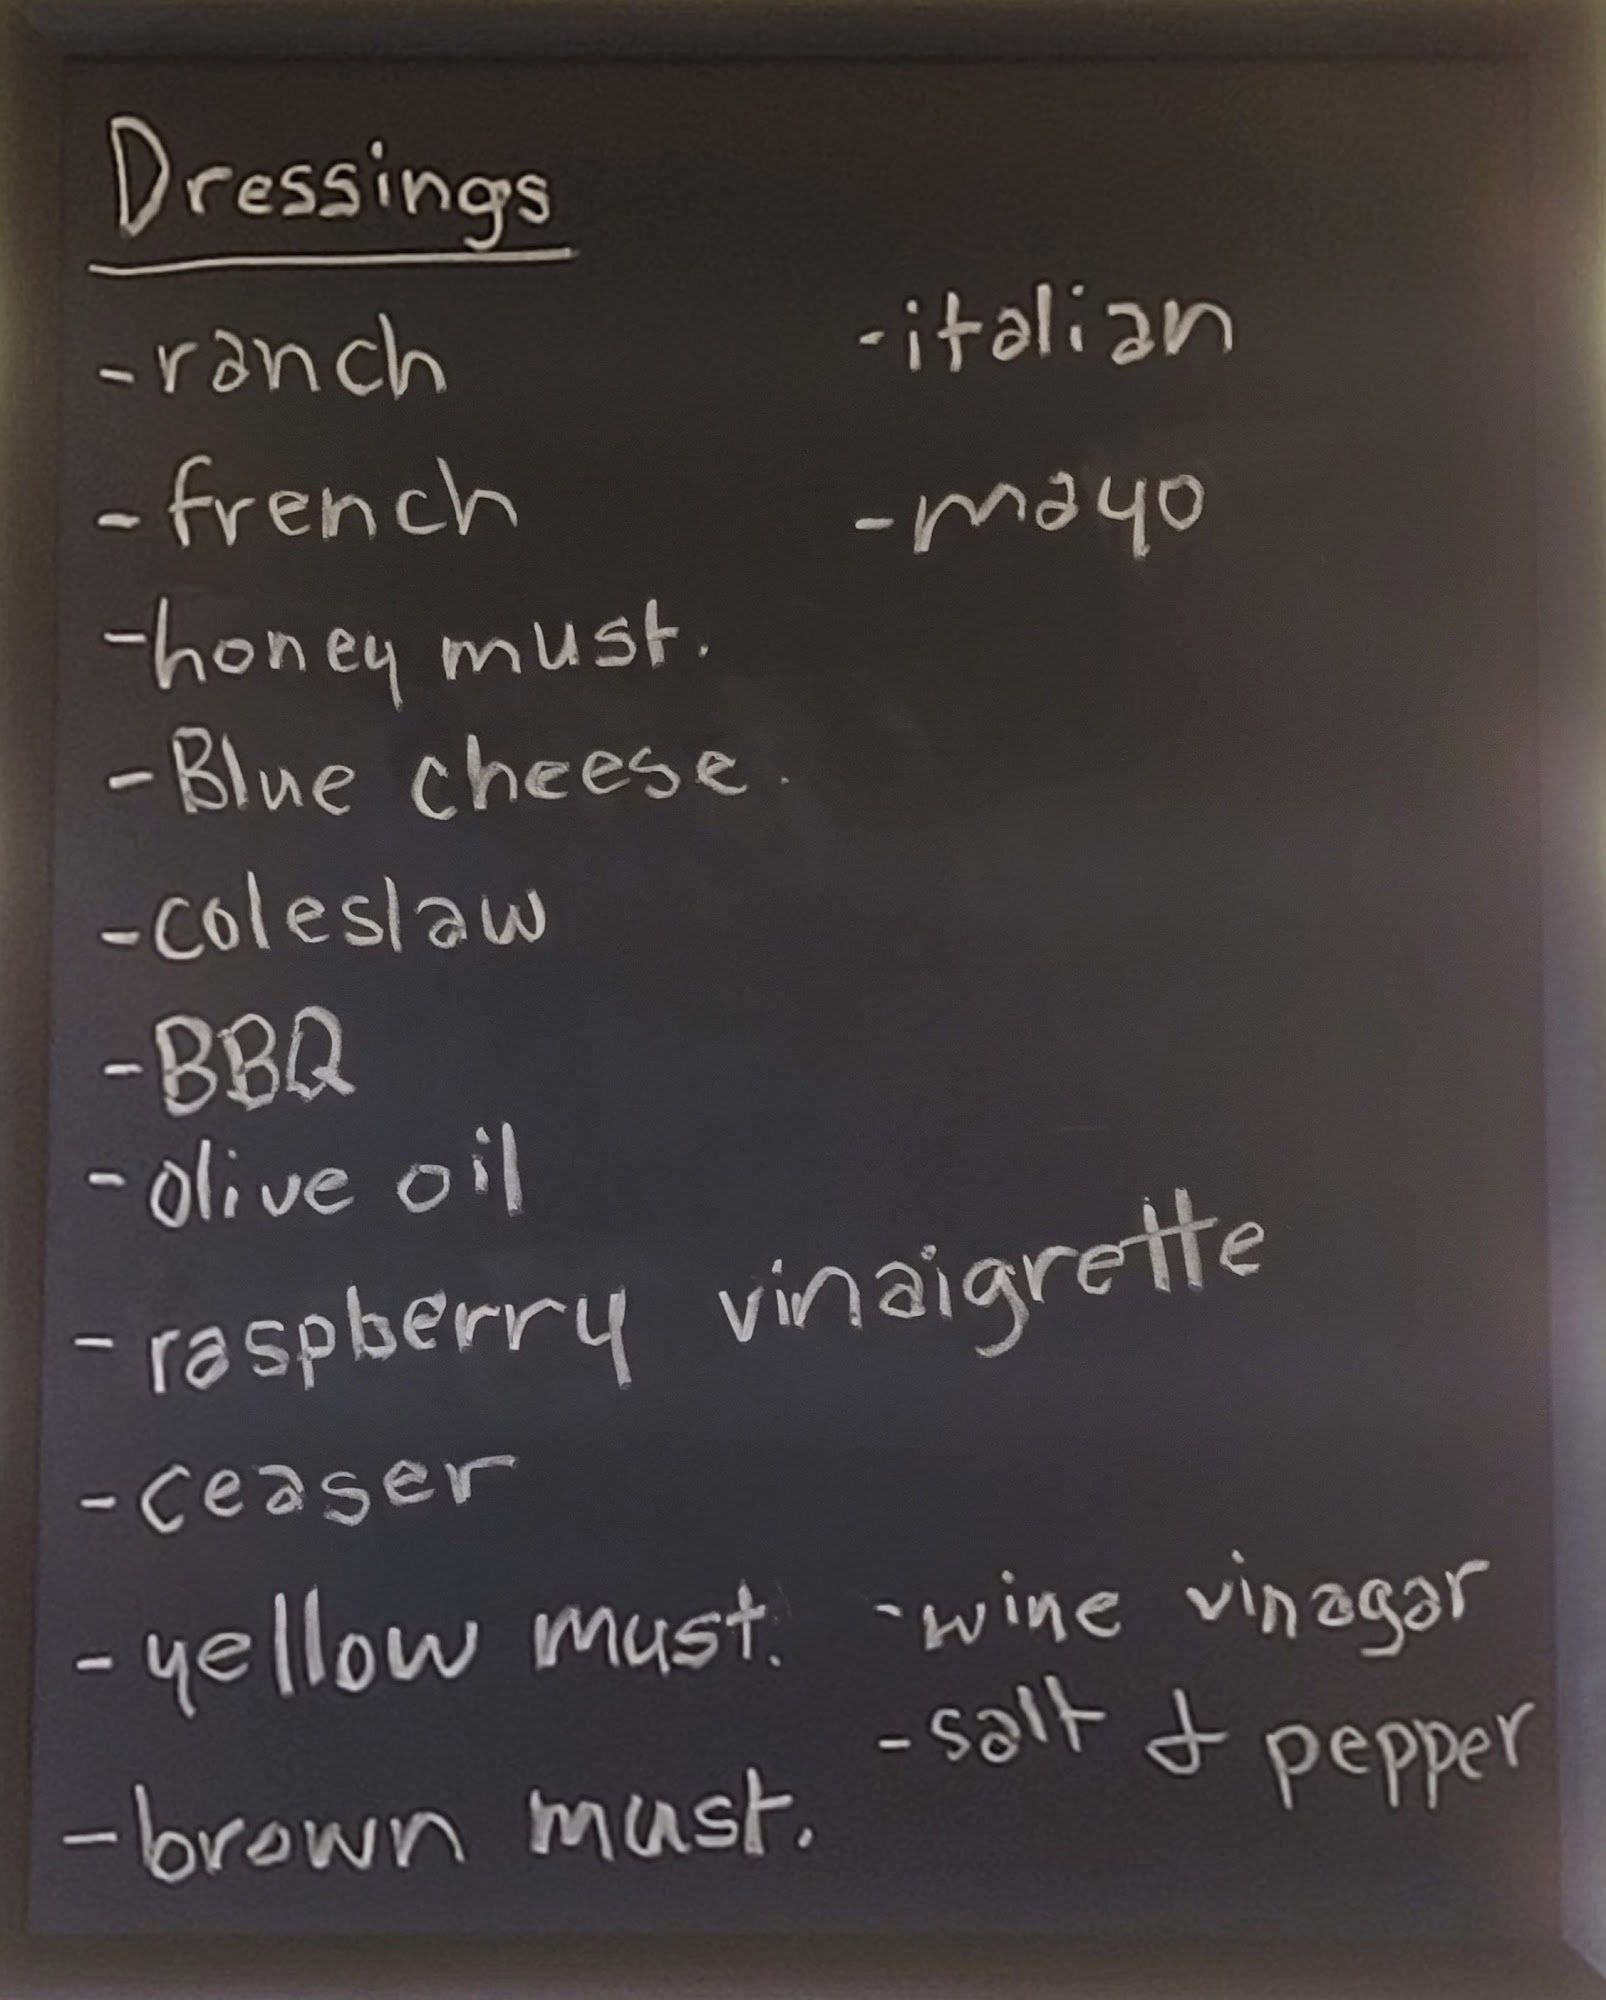 Dressings
-ranch
-french
-honey must.
-Blue cheese
-coleslaw
-BBQ
-olive oil
-raspberry vinaigrette
-ceaser
-yellow must.
-brown must.
-italian
-mayo
-wine vinagar
-salt & pepper